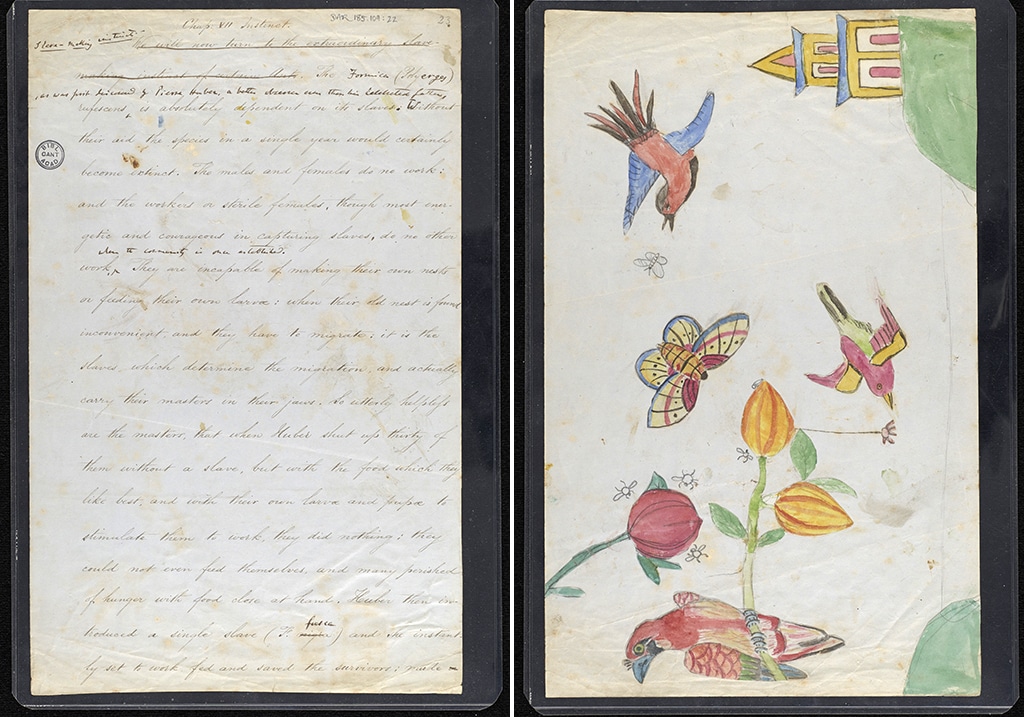 DAR 185.109:22
Chap. VII Instinct.
Slave-making instinct.—
We will now turn to the extraordinary slave-
making instinct of certain Ants. The Formica (Polyerges)
, as was first discovered by Pierre Huber, a better observer even than his celebrated father,
rufescens, is absolutely dependent on its slaves. Without
their aid the species in a single year would certainly
become extinct. The males and females do no work:
and the workers or sterile females, though most ener-
getic and courageous in capturing slaves, do no other
when the community is once established.
work. They are incapable of making their own nests
or feeding their own larvæ: when their old nest is found
inconvenient, and they have to migrate, it is the
slaves, which determine the migration, and actually
carry their masters in their jaws. So utterly helpless
are the masters, that when Huber shut up thirty of
them without a slave, but with the food which they
like best, and with their own larvæ and pupæ to
stimulate them to work, they did nothing; they
could not even feed themselves, and many perished
of hunger with food close at hand. Huber then in-
fusca
troduced a single slave (F. ) and she instant-
ly set to work fed and saved the survivors; made
BIBL
CANT
ACAD